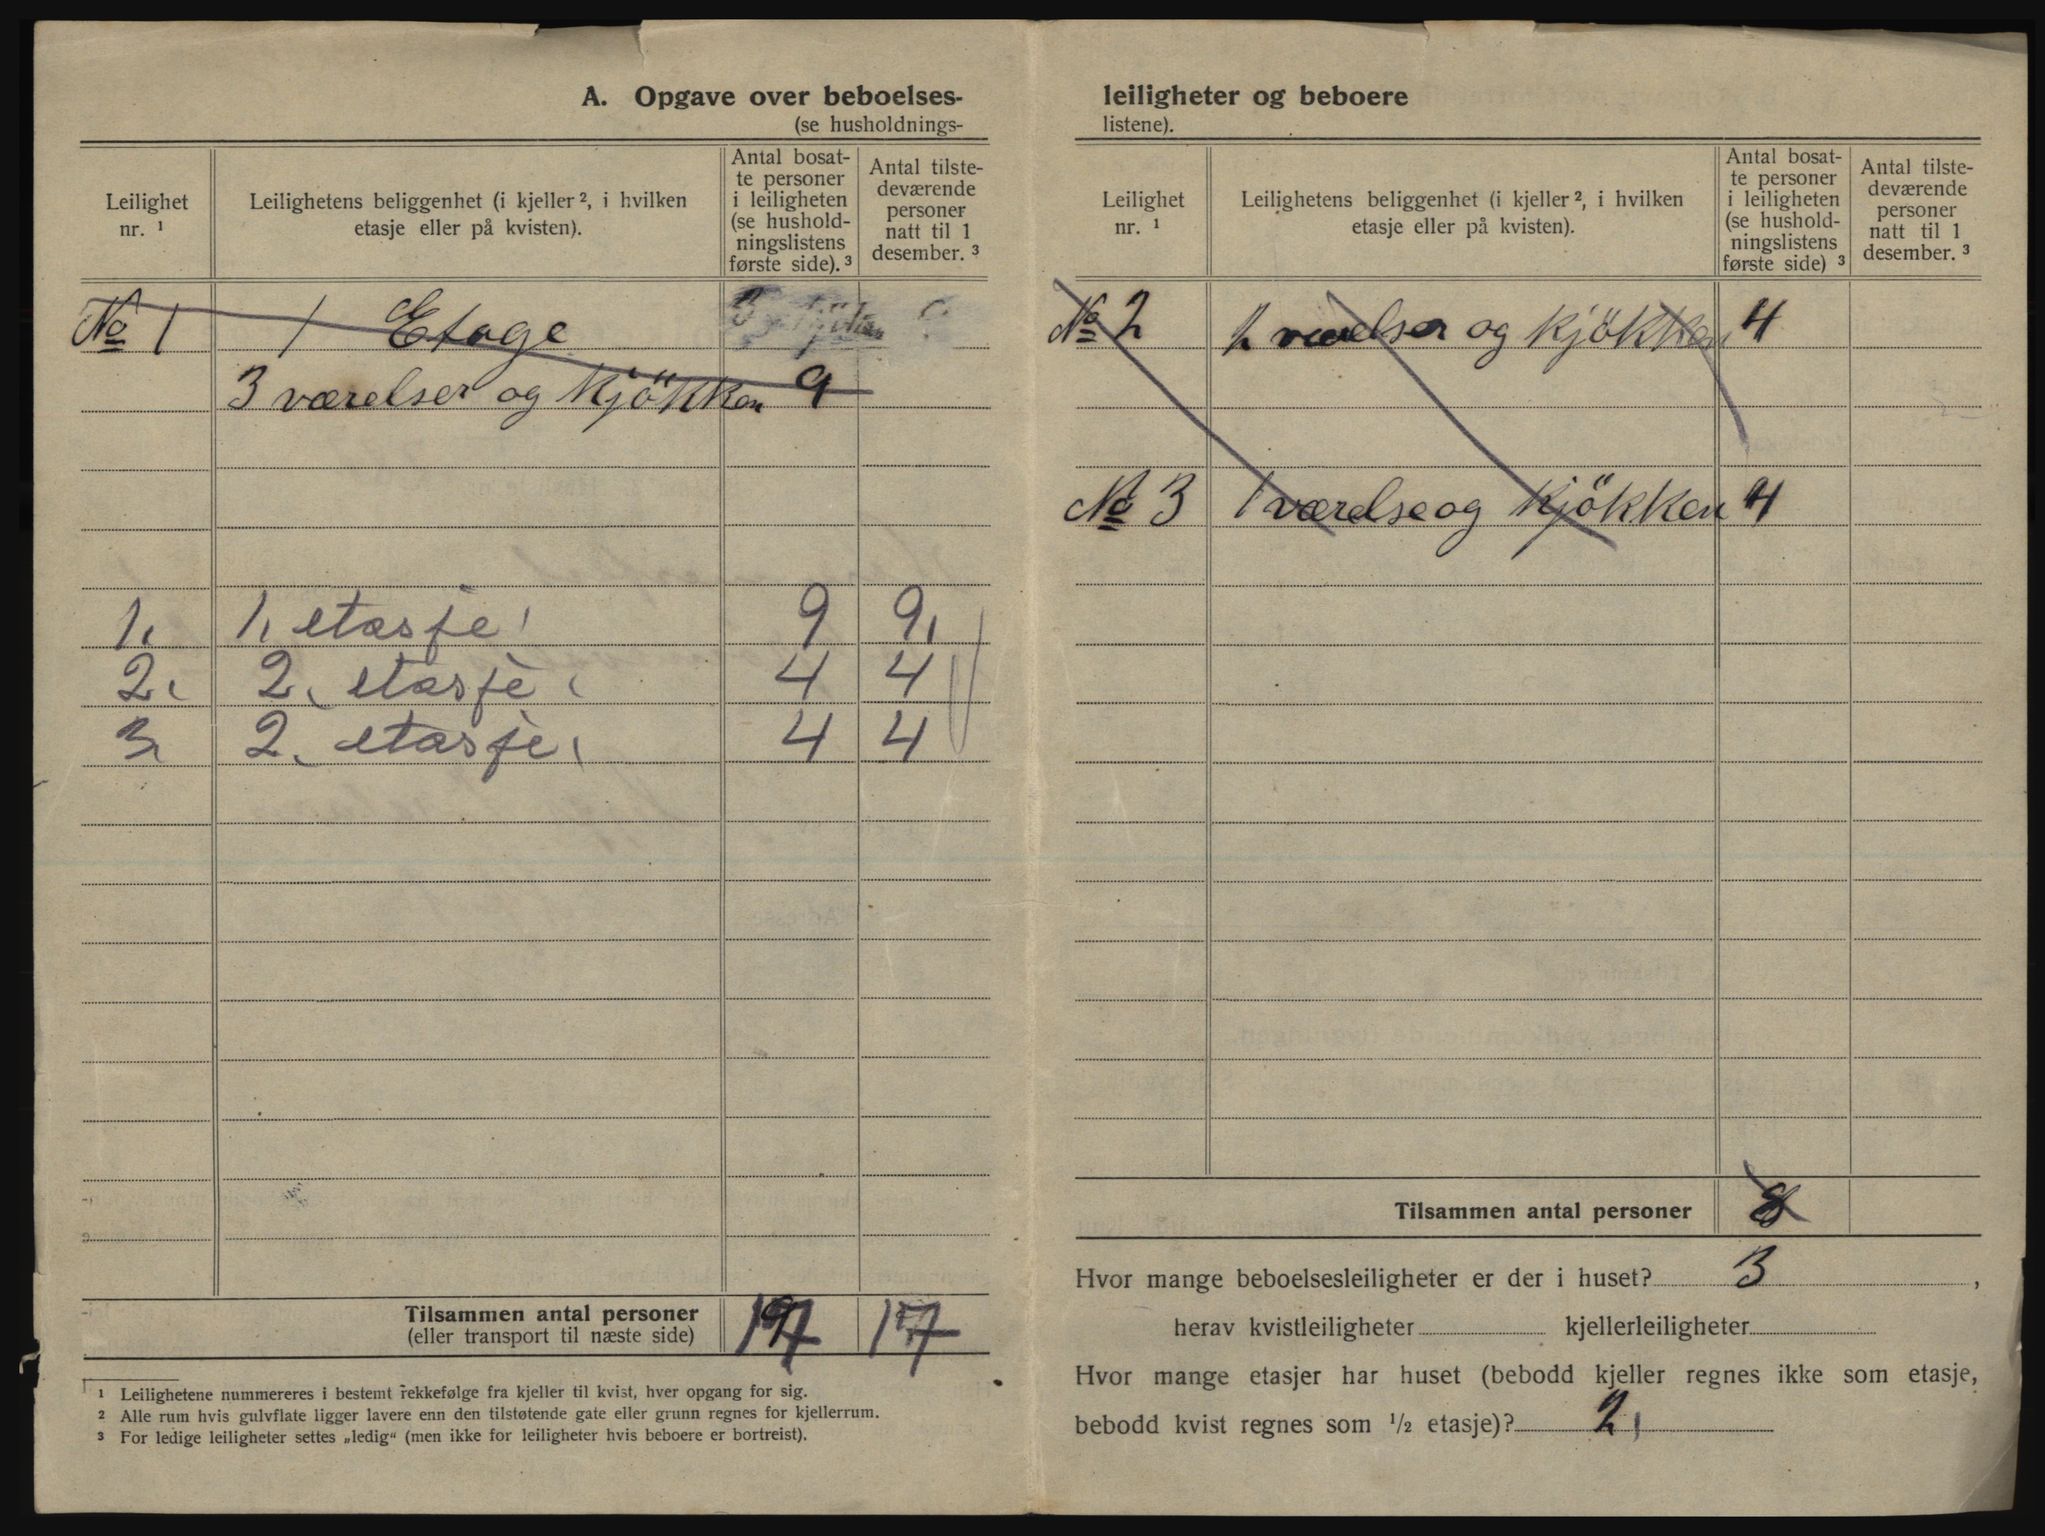 A. Opgave over beboelses-
(se husholdnings-
Leilighet
nr. ¹
Leilighetens beliggenhet (i kjeller ², i hvilken
etasje eller på kvisten).
Antal bosat-
te personer
i leiligheten
(se hushold-
ningslistens
første side). ³
Antal tilste-
deværende
personer
natt til 1
desember. ³
No 1 1 Etage
3 værelser og kjökken 9
1. 1. etasje 9 9
2. 2. etasje 4 4
3. 2. etasje 4 4
Tilsammen antal personer
(eller transport til næste side) 17 17
¹ Leilighetene nummereres i bestemt rekkefølge fra kjeller til kvist, hver opgang for sig.
² Alle rum hvis gulvflate ligger lavere enn den tilstøtende gate eller grunn regnes for kjellerrum.
³ For ledige leiligheter settes „ledig“ (men ikke for leiligheter hvis beboere er bortreist).
leiligheter og beboere
listene).
Leilighet
nr. ¹
Leilighetens beliggenhet (i kjeller ², i hvilken
etasje eller på kvisten).
Antal bosat-
te personer
i leiligheten
(se hushold-
ningslistens
første side) ³
Antal tilste-
deværende
personer
natt til 1
desember. ³
No 2 2 værelser og kjökken 4
No 3 1 værelse og kjökken 4
Tilsammen antal personer 8
Hvor mange beboelsesleiligheter er der i huset? 3 ,
herav kvistleiligheter kjellerleiligheter
Hvor mange etasjer har huset (bebodd kjeller regnes ikke som etasje,
bebodd kvist regnes som ½ etasje)? 2,